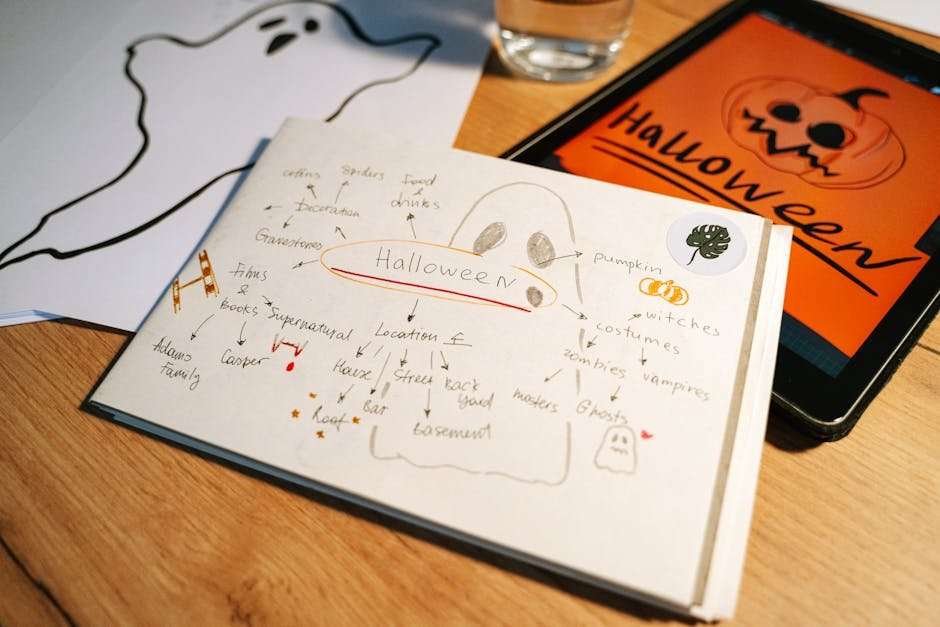 spiders
Food
&
drinks
Decoration
Gravestones
Halloween
pumpkin
Films
&
Books
Supernatural
Adams
Family
Casper
Location
House
Street
Back
Yard
Roof
Bar
Basement
costumes
witches
zombies
vampires
Ghosts
Halloween